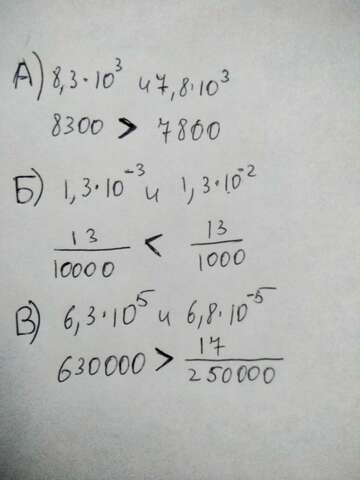 А) 8,3·10³ и 7,8·10³
8300 > 7800
Б) 1,3·10⁻³ и 1,3·10⁻²
13/10000 < 13/1000
В) 6,3·10⁵ и 6,8·10⁻⁵
630000 > 17/250000